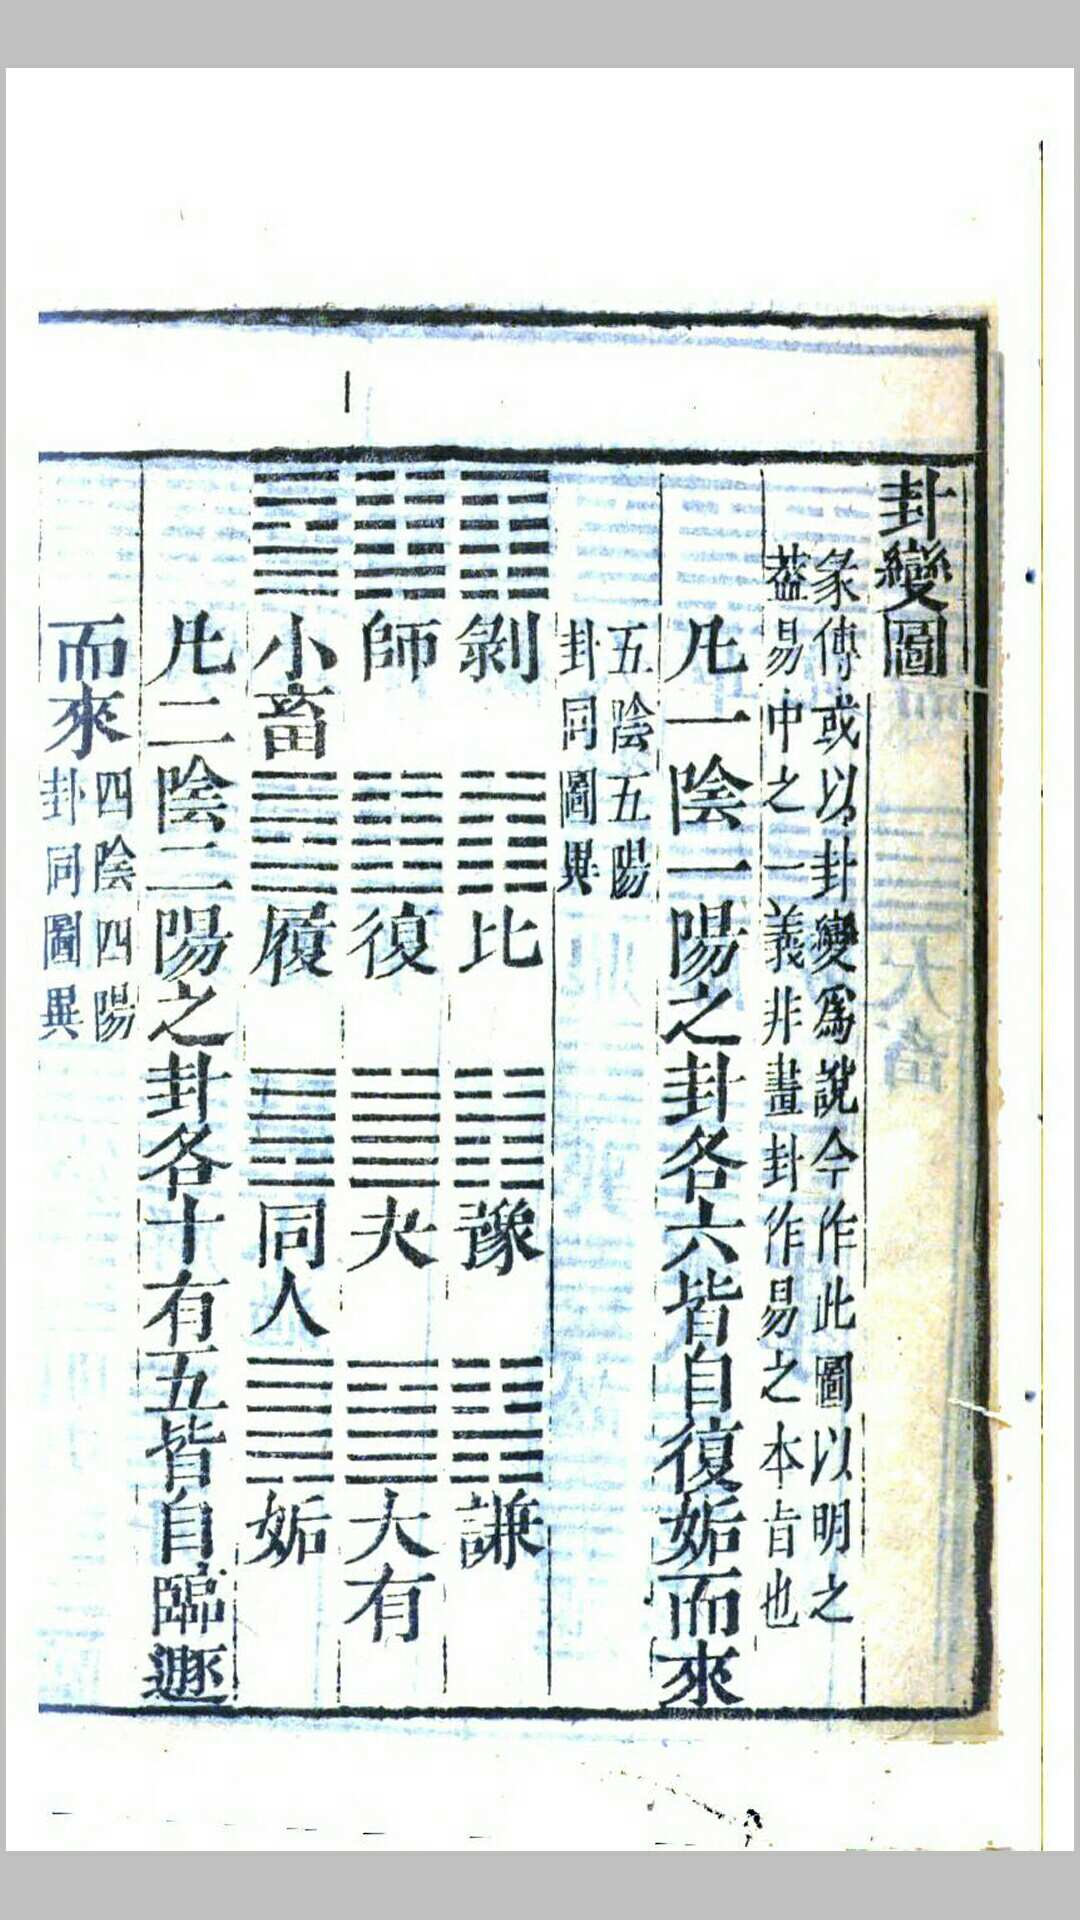 卦變圖
彖傳或以卦變爲說今作此圖以明之
葢易中之一義非畫卦作易之本旨也
凡一陰一陽之卦各六皆自復姤而來
五陰五陽
卦同圖異
剝 比 豫 謙
師 復 夬 大有
小畜 履 同人 姤
凡二陰二陽之卦各十有五皆自臨遯
而來
四陰四陽
卦同圖異